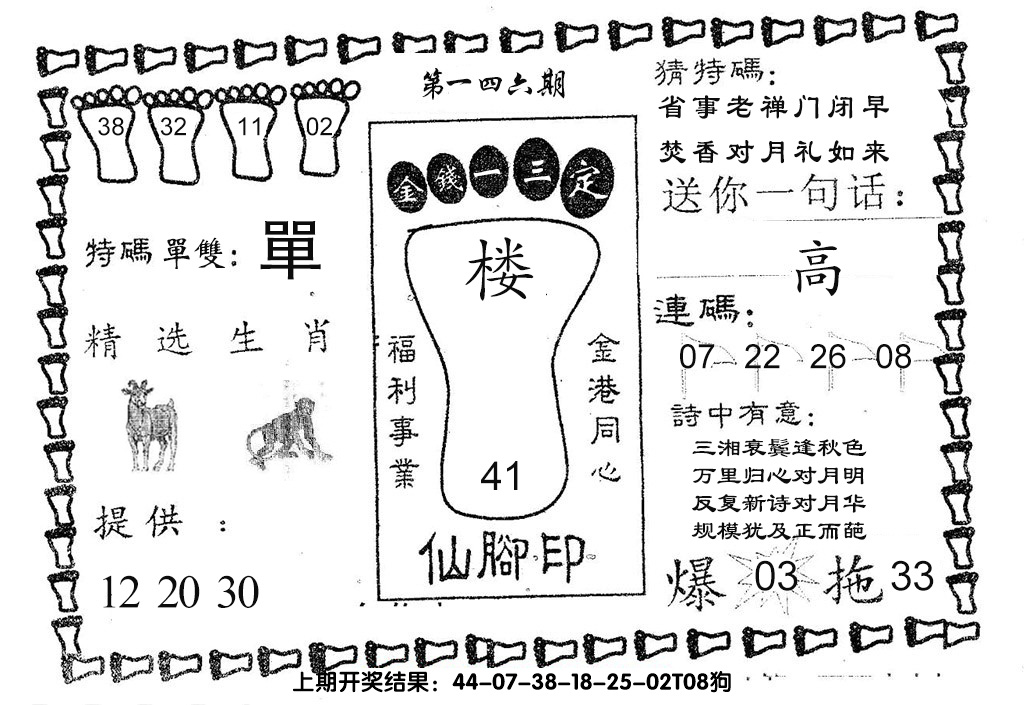 第一四六期
38 32 11 02
特碼單雙：單
精选生肖
提供：
12 20 30
金錢一三定
楼
福利事業
金港同心
41
仙腳印
猜特碼：
省事老禅门闭早
焚香对月礼如来
送你一句话：
高
連碼：
07 22 26 08
詩中有意：
三湘衰鬓逢秋色
万里归心对月明
反复新诗对月华
规模犹及正而葩
爆 03 拖 33
上期开奖结果：44-07-38-18-25-02T08狗